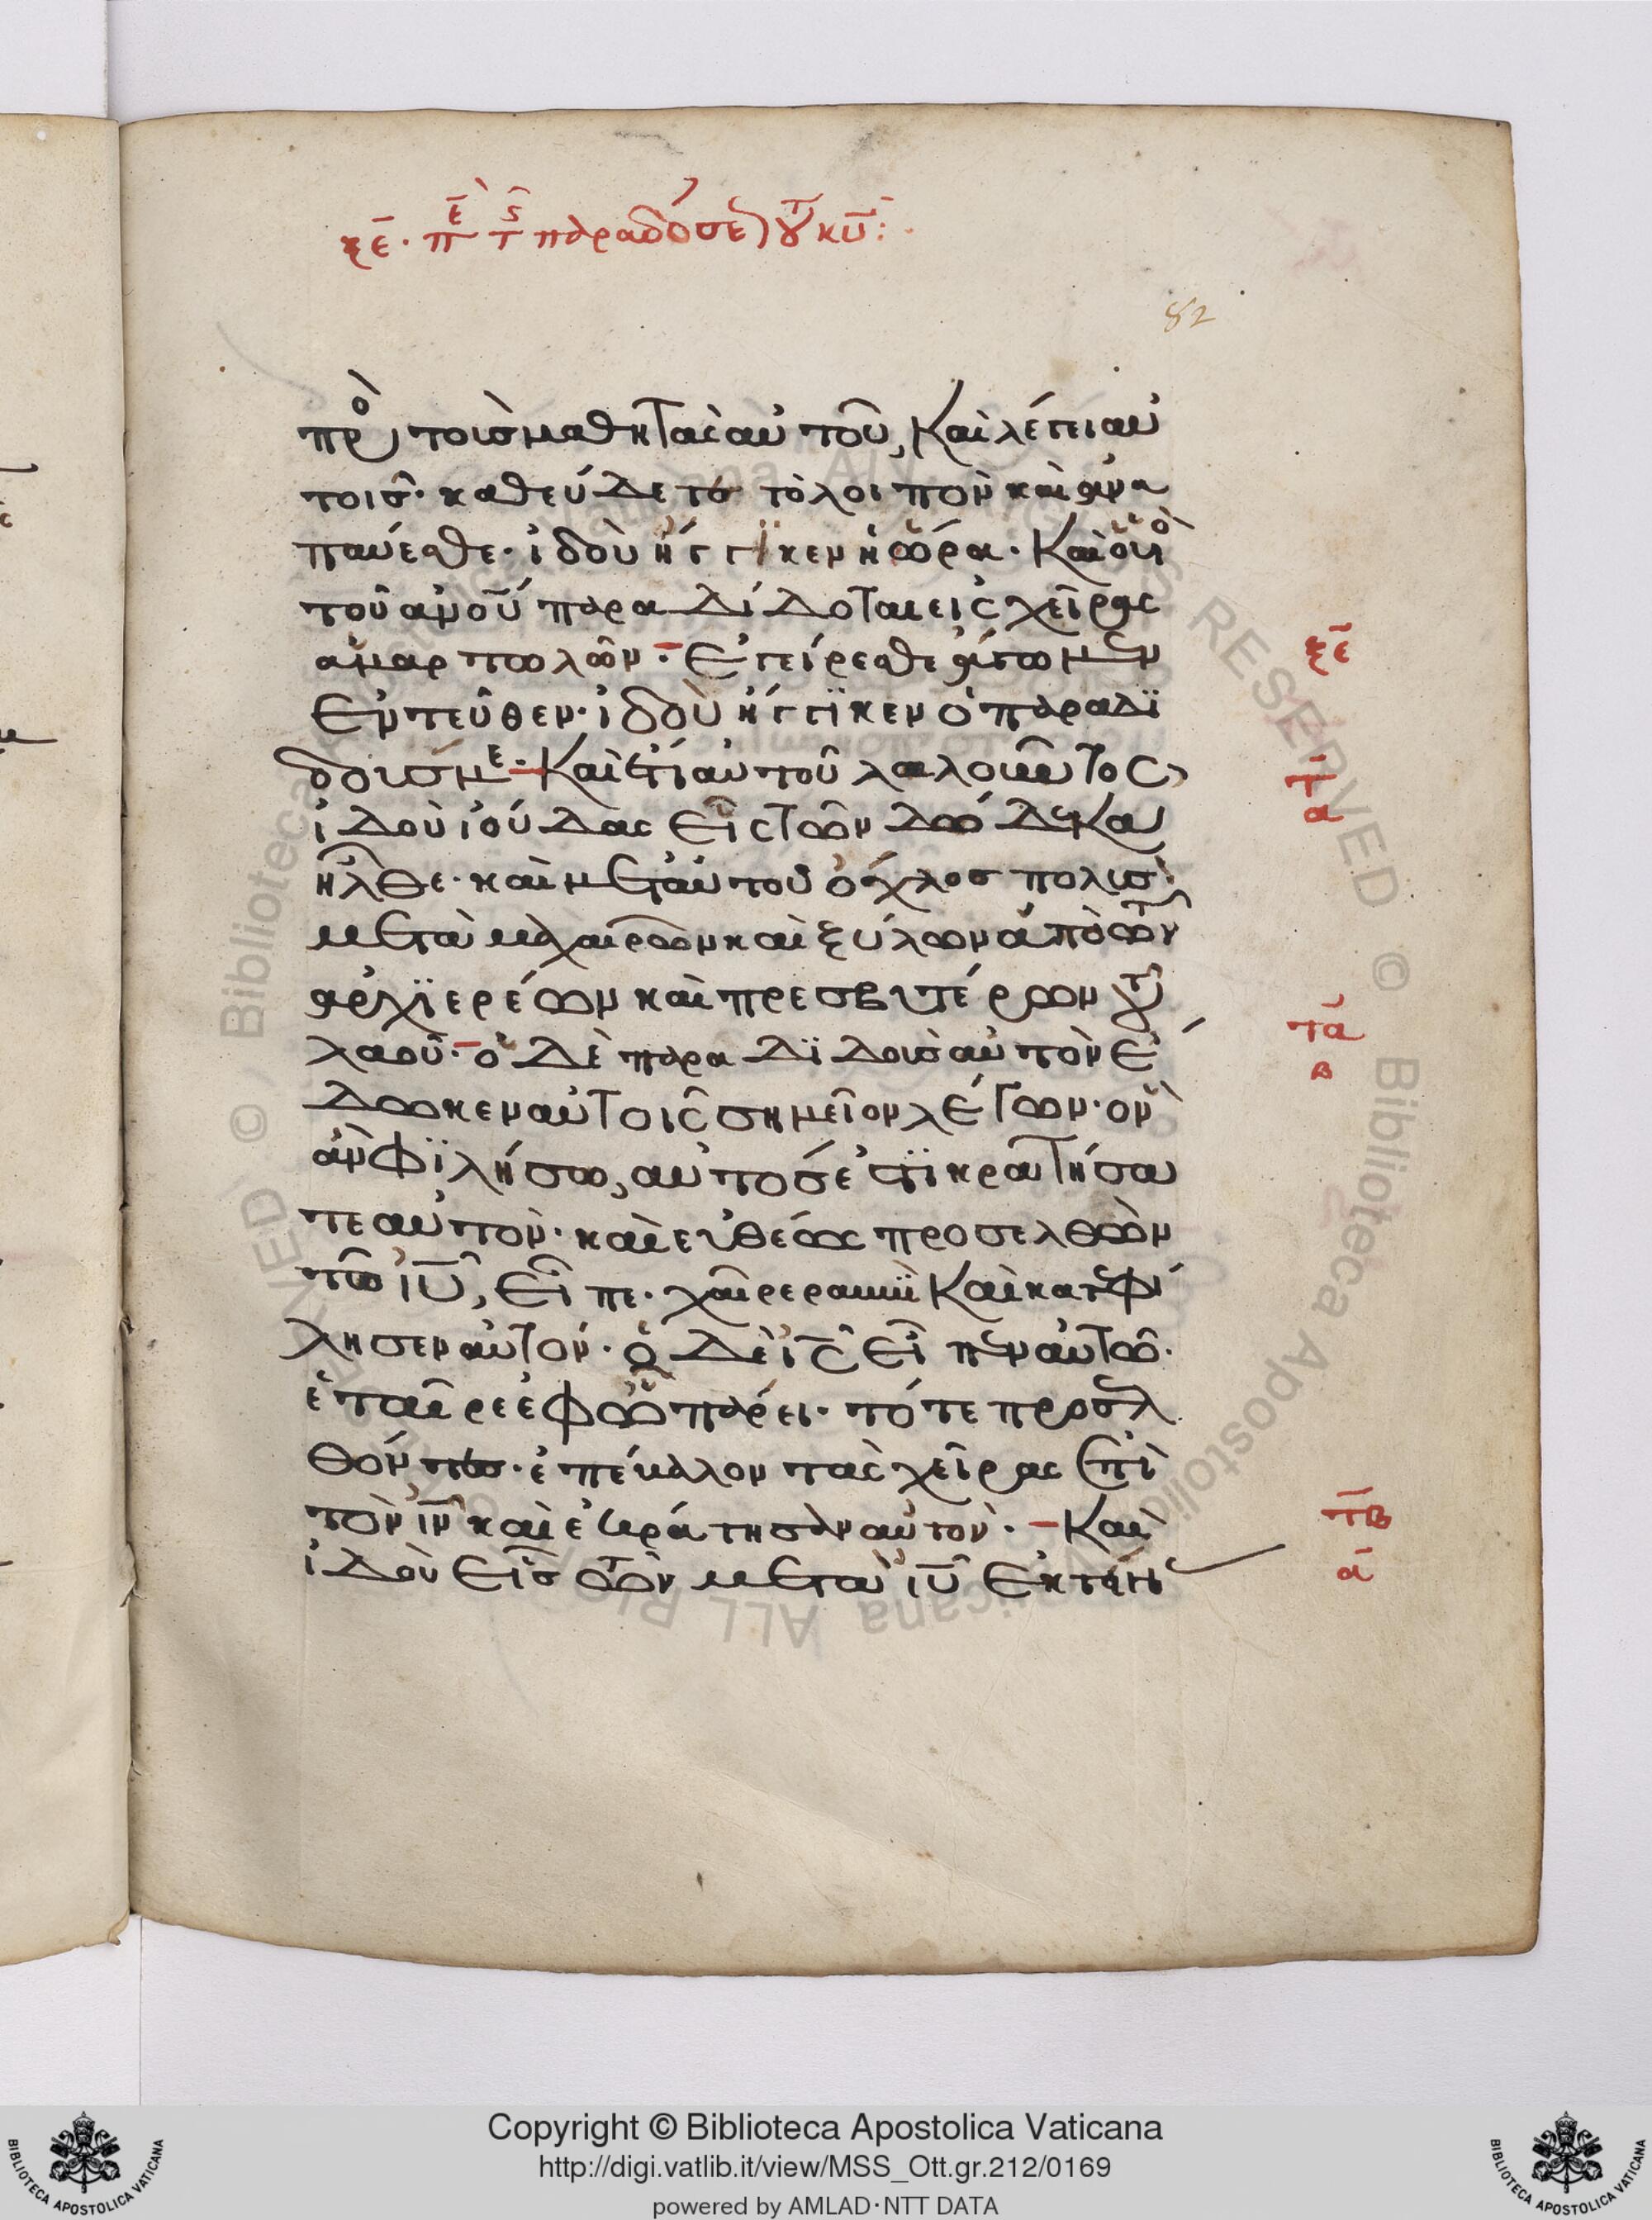 ξε̄. πε̄ τς παραδόσε(ως) τ(ου) κῡ:
82
πρὸ(ς) τοὺσ μαθητὰς αὐτοῦ, Καὶ λέγει αὐ
τοῖσ· καθεύδετε τὸ λοιπὸν καὶ ἀνα
παύεσθε· ἰδοὺ ἤγγϊκεν ἡ ὥρα· Καὶ ὁ ὑιὸ(ς)
τοῦ ἀν̅ο̅ῦ παραδίδοται εἰς χεῖρας
ἁμαρτωλῶν· Ἐγείρεσθε ἄγωμεν
Ἐντεῦθεν· ἰδοὺ ἤγγϊκεν ὁ παραδϊ
δούσ με· Καὶ ἔτι αὐτοῦ λαλοῦντος
ἰδοὺ ἰούδας εἷς τῶν δώδεκα
ἦλθε· καὶ μετ᾽ αὐτοῦ ὄχλοσ πολύσ·
μετὰ μαχαιρῶν καὶ ξύλων ἀπὸ τῶν
ἀρχϊερέων καὶ πρεσβυτέρων τοῦ
λαοῦ· ὁ δὲ παραδϊδοὺσ αὐτὸν ἔ
δωκεν αὐτοῖς σημεῖον λέγων· ὃν
ἂν φϊλήσω, αὐτόσ ἐστϊ κρατήσα
τε αὐτόν· καὶ εὐθέως προσελθὼν
τῶ ῑῡ, εἶπε· χαῖρε ραββϊ Καὶ κατεφί
λησεν αὐτόν· ὁ δὲ ῑς̄ εἶπεν αὐτῶ·
ἑταῖρε ἐφ ὧ πάρει· τότε προσελ
θόντεσ· ἐπέβαλον τὰς χεῖρας ἐπὶ
τὸν ῑν̄ καὶ ἐκράτησαν αὐτόν· Καὶ
ἰδοὺ εἷσ τῶν μετὰ ῑῡ ἐκτείν
ξε̄
τ̄
α
τᾱ
β
τ̄β
ᾱ
Copyright © Biblioteca Apostolica Vaticana
http://digi.vatlib.it/view/MSS_Ott.gr.212/0169
powered by AMLAD·NTT DATA